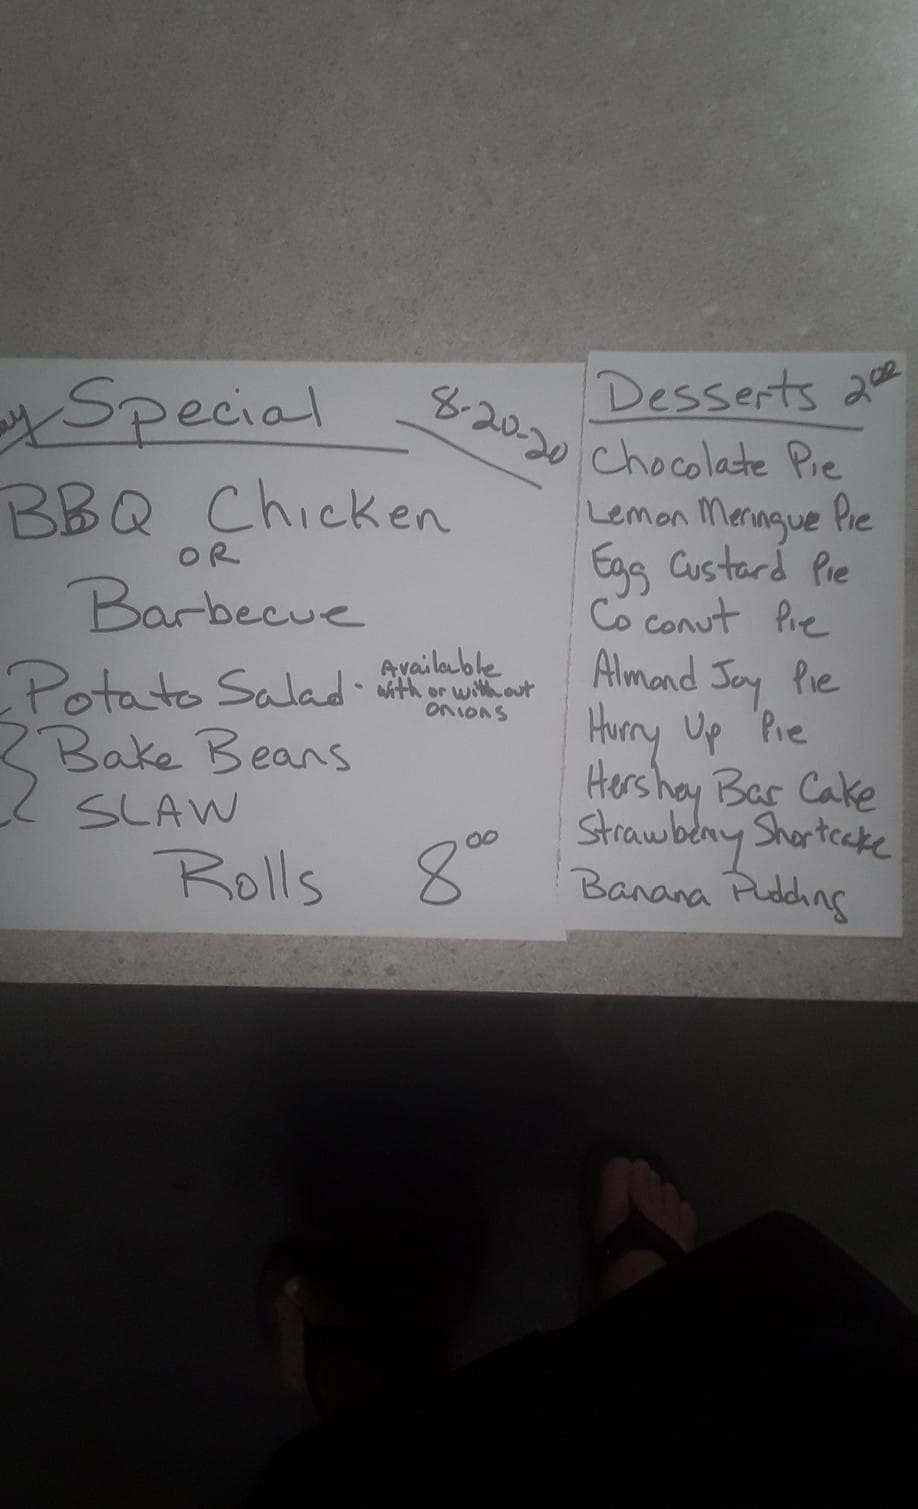 Special 8-20-20
BBQ Chicken
OR
Barbecue
Potato Salad - Available
with or without
onions
Bake Beans
SLAW
Rolls 8⁰⁰
Desserts 2⁰⁰
Chocolate Pie
Lemon Meringue Pie
Egg Custard Pie
Coconut Pie
Almond Joy Pie
Hurry Up Pie
Hershey Bar Cake
Strawberry Shortcake
Banana Pudding